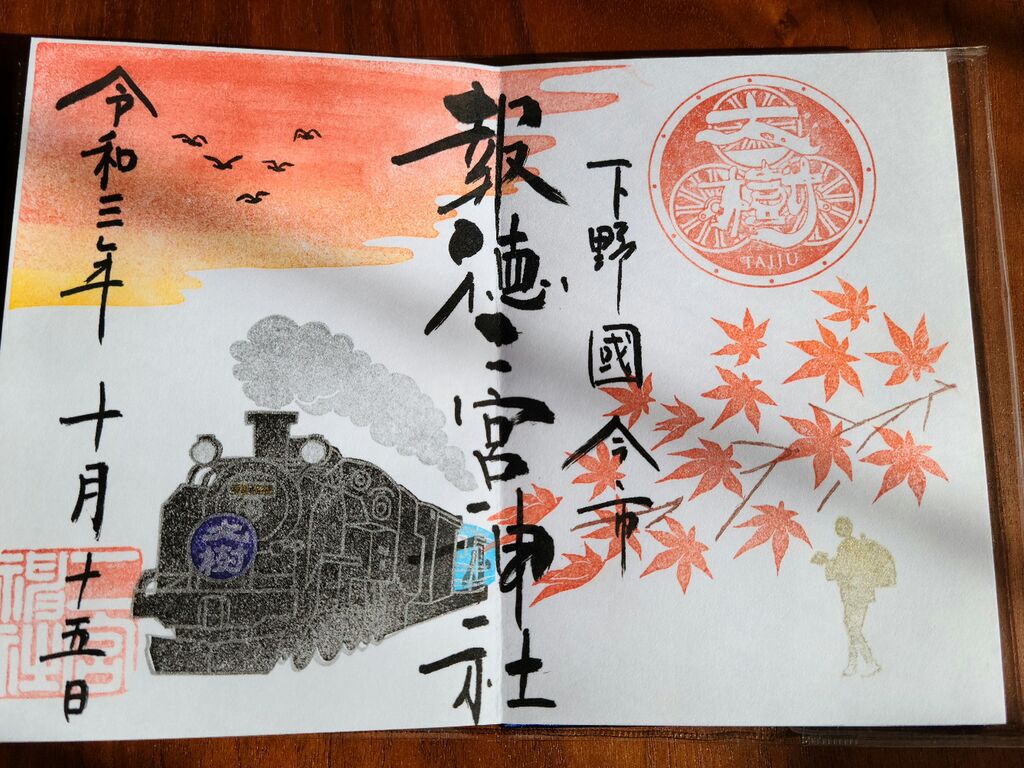 大樹
TAIJU
下野國今市
報徳二宮神社
大樹
令和三年十月十五日